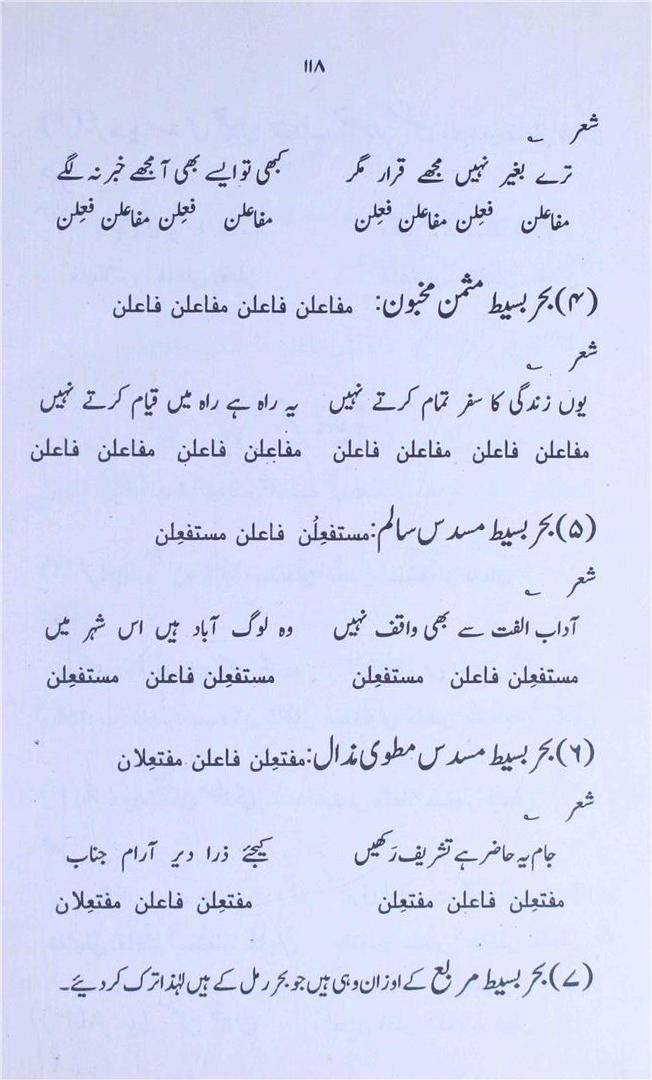 ۱۱۸
شعر
ترے بغیر نہیں مجھے قرار مگر کبھی تو ایسے بھی آ مجھے خبر نہ لگے
مفاعلن فعِلن مفاعلن فعِلن مفاعلن فعِلن مفاعلن فعِلن
(۴) بحر بسیط مثمن مخبون: مفاعلن فاعلن مفاعلن فاعلن
شعر
یوں زندگی کا سفر تمام کرتے نہیں یہ راہ ہے راہ میں قیام کرتے نہیں
مفاعلن فاعلن مفاعلن فاعلن مفاعلن فاعلن مفاعلن فاعلن
(۵) بحر بسیط مسدس سالم: مستفعِلُن فاعلن مستفعِلن
شعر
آداب الفت سے بھی واقف نہیں وہ لوگ آباد ہیں اس شہر میں
مستفعِلن فاعلن مستفعِلن مستفعِلن فاعلن مستفعِلن
(۶) بحر بسیط مسدس مطوی مذال: مفتعِلن فاعلن مفتعِلان
شعر
جام یہ حاضر ہے تشریف رَکھیں کیجئے ذرا دیر آرام جناب
مفتعِلن فاعلن مفتعِلن مفتعِلن فاعلن مفتعِلان
(۷) بحر بسیط مربع کے اوزان وہی ہیں جو بحر رمل کے ہیں لہٰذا ترک کر دیئے۔